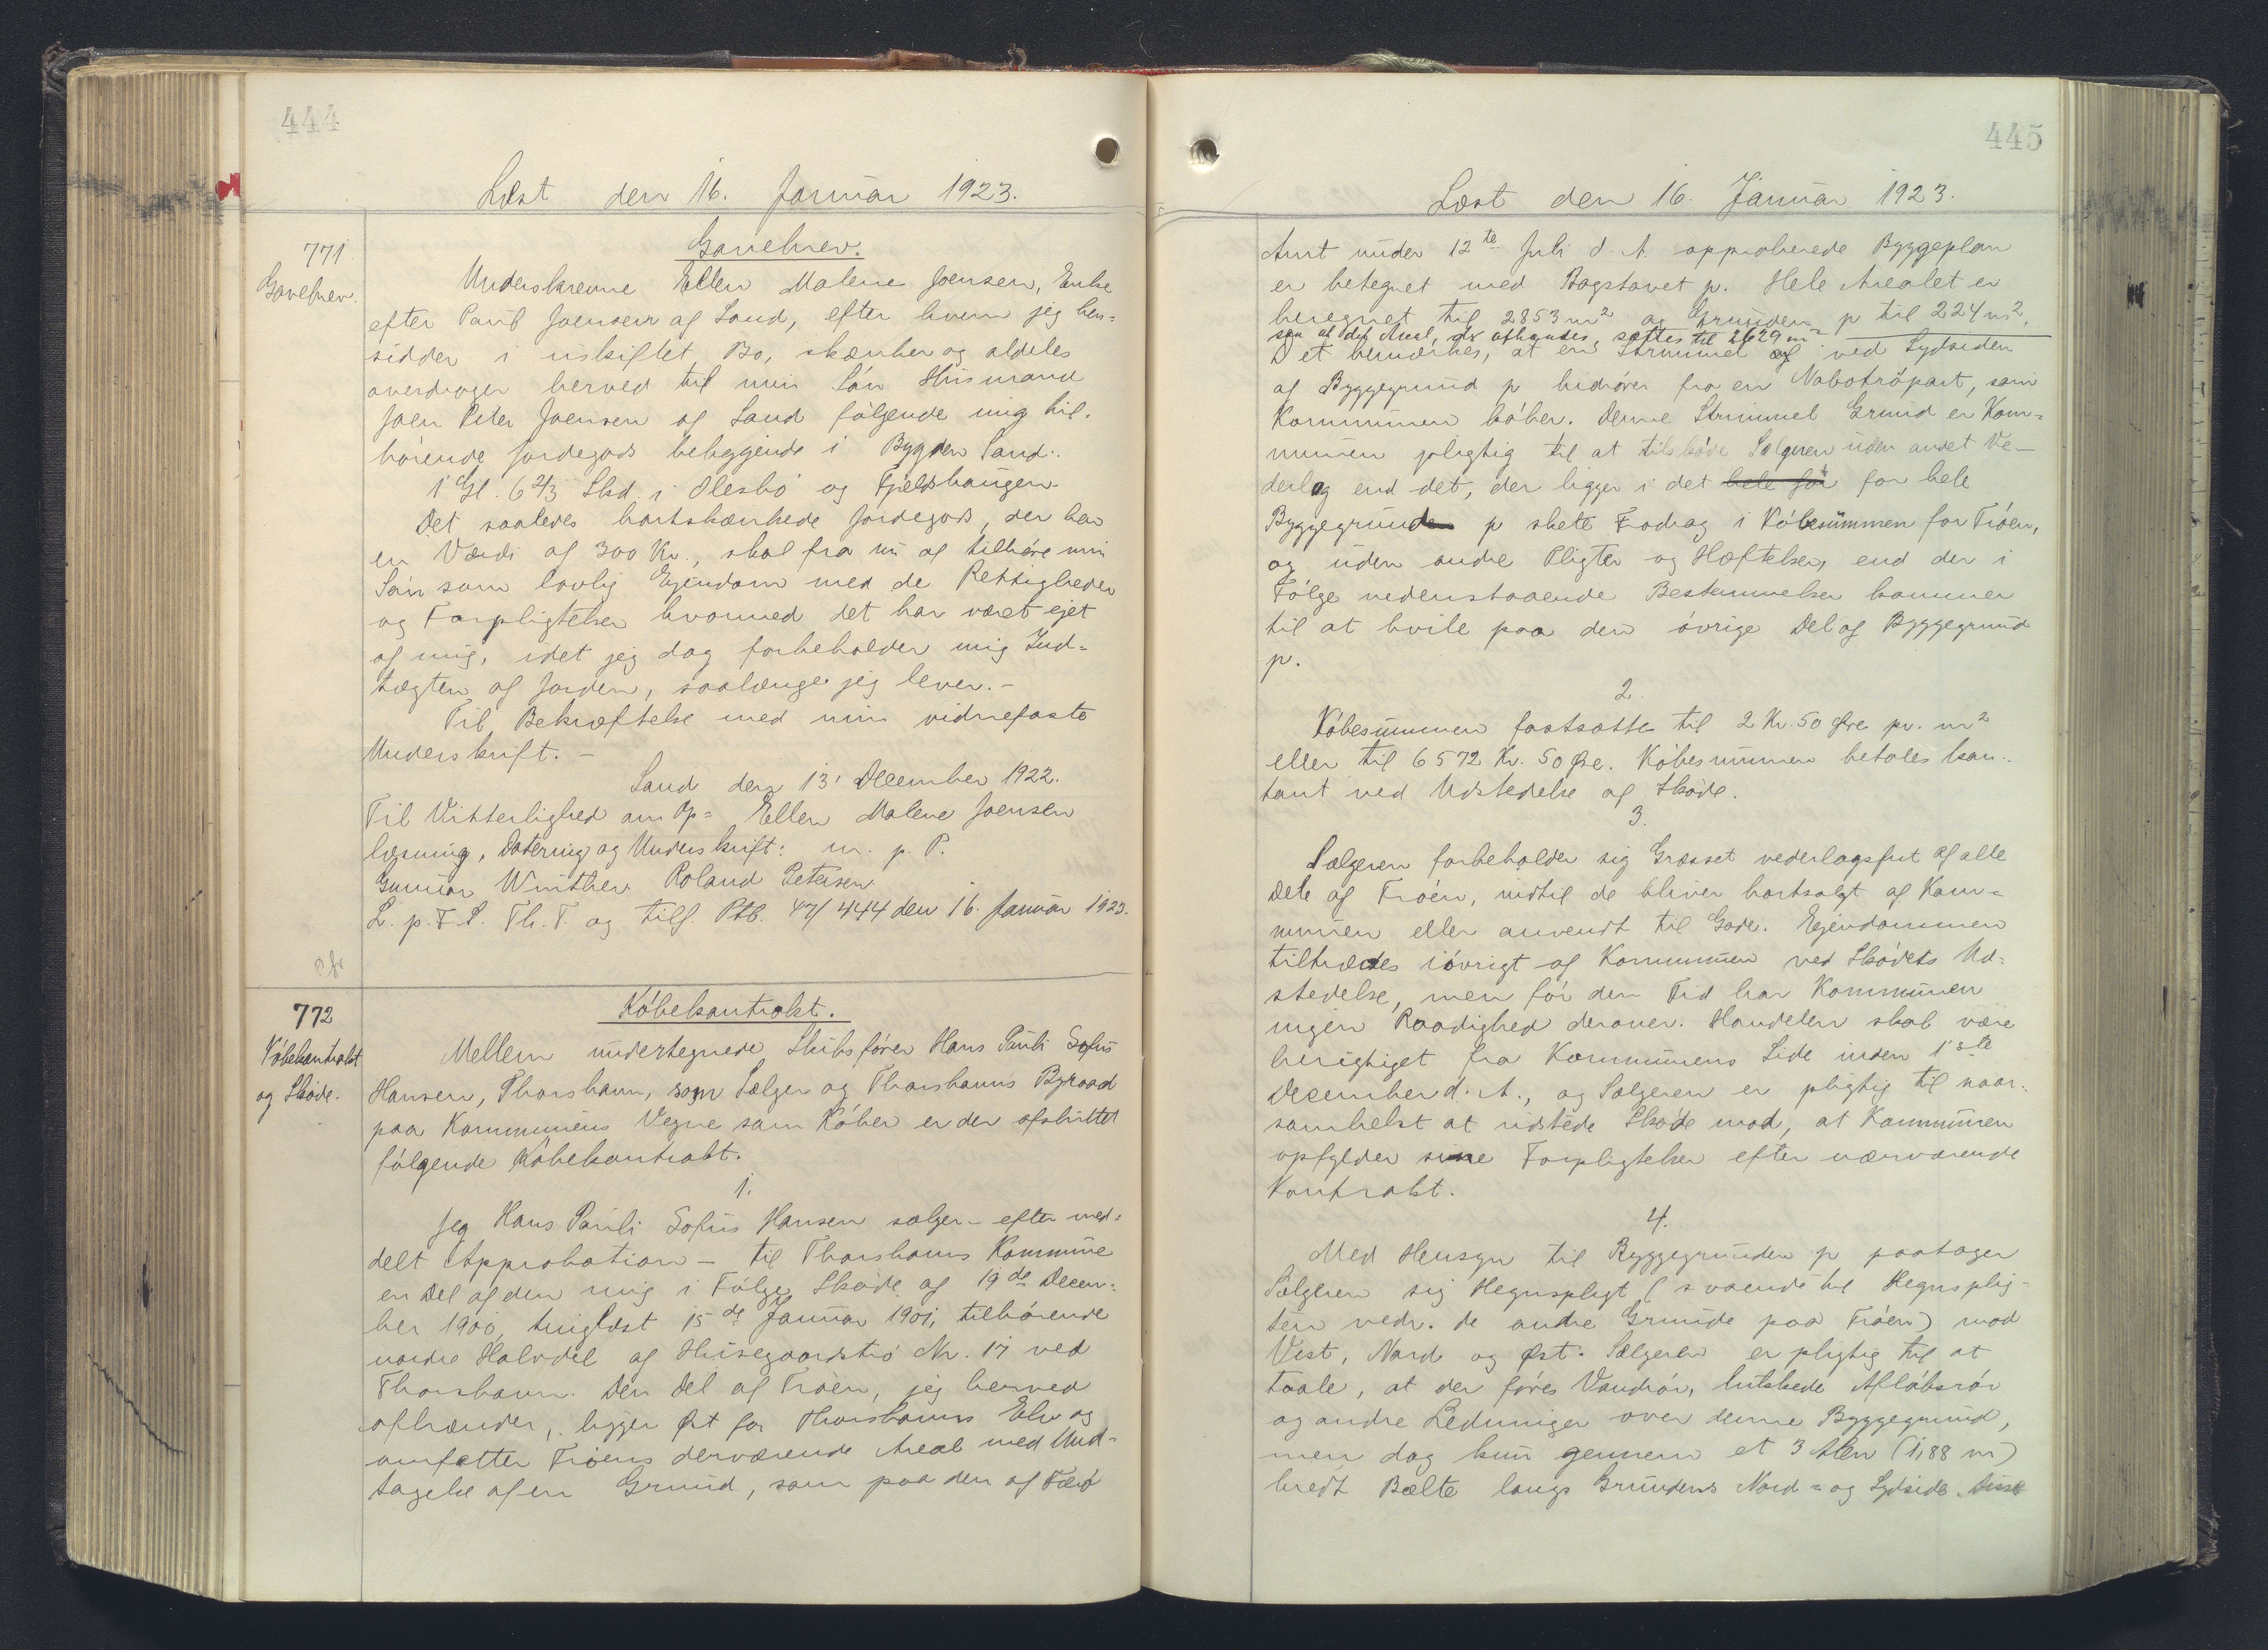 444
Læst den 16. Januar 1923.
771.
Gavebrev.
Gavebrev.
Underskrevne Ellen Malene Joensen, Enke
efter Paul Joensen af Sand, efter hvem jeg hen=
sidder i uskiftet Bo, skænker og aldeles
overdrager herved til min Søn Husmand
Joen Peter Joensen af Sand følgende mig til.
hørende Jordegods beliggende i Bygden Sand:
1 Gl. 6 2/3 Skd. i Olesbø og Fjeldshaugen.
Det saaledes bortskænkede Jordegods, der har
en Værdi af 300 Kr., skal fra nu af tilhøre min
Søn som lovlig Ejendom med de Rettigheder
og Forpligtelser hvormed det har været ejet
af mig, idet jeg dog forbeholder mig Ind=
tægten af Jorden, saalænge jeg lever.-
Til Bekræftelse med min vidnefaste
Underskrift. -
Sand den 13' December 1922.
Til Vitterlighed om Op= Ellen Malene Joensen
læsning, Datering og Underskrift: m. p. P.
Gunnar Winther. Roland Petersen
L. p. F. S. Th. T. og tilf. Ptb. 47/444 den 16. Januar 1923.
772
Købekontrakt
og Skøde.
Købekontrakt.
Mellem undertegnede Skibsfører Hans Pauli Sofus
Hansen, Thorshavn, som Sælger og Thorshavns Byraad
paa Kommunens Vegne som Køber er der afsluttet
følgende Købekontrakt.
1.
Jeg Hans Pauli Sofus Hansen sælger - efter med=
delt Approbation - til Thorshavns Kommune
en Del af den mig i Følge Skøde af 19de Decem=
ber 1900, tinglæst 15de Januar 1901, tilhørende
nordre Halvdel af Husegaardstrø Nr. 17 ved
Thorshavn. Den Del af Trøen, jeg herved
afhænder, ligger Øst for Thorshavns Elv og
omfatter Trøens derværende Areal med Und=
tagelse af en Grund, som paa den af Færø
445
Læst den 16. Januar 1923.
Amt under 12te Juli d. A. approberede Byggeplan
er betegnet med Bogstavet p. Hele Arealet er
beregnet til 2853 m2 og Grunden p til 224 m2,
saa at det Areal, der afhændes, sættes til 2629 m2.
Det bemærkes, at en Strimmel af ved Sydsiden
af Byggegrund p hidrører fra en Nabotrøpart, som
Kommunen køber. Denne Strimmel Grund er Kom=
munen pligtig til at tilskøde Sælgeren uden andet Ve-
derlag end det, der ligger i det hele for for hele
Byggegrunden p skete Fradrag i Købesummen for Trøen,
og uden andre Pligter og Hæftelser, end der i
Følge nedenstaaende Bestemmelser kommer
til at hvile paa den øvrige Del af Byggegrund
p.
2.
Købesummen fastsættes til 2 Kr. 50 Øre pr. m2
eller til 6572 Kr. 50 Øre. Købesummen betales kon-
tant ved Udstedelse af Skøde.
3.
Sælgeren forbeholder sig Græsset vederlagsfrit af alle
Dele af Trøen, indtil de bliver bortsolgt af Kom=
munen eller anvendt til Gade. Ejendommen
tiltrædes iøvrigt af Kommunen ved Skødets Ud=
stedelse, men før den Tid har Kommunen
ingen Raadighed derover. Handelen skal være
berigtiget fra Kommunens Side inden 1ste
December d. A., og Sælgeren er pligtig til naar-
somhelst at udstede Skøde mod, at Kommunen
opfylder sine Forpligtelser efter nærværende
Kontrakt.
4.
Med Hensyn til Byggegrunden p paatager
Sælgeren sig Hegnspligt (svarende til Hegnsplig-
ten vedr. de andre Grunde paa Trøen) mod
Vest, Nord og Øst. Sælgeren er pligtig til at
taale, at der føres Vandrør, lukkede Afløbsrør
og andre Ledninger over denne Byggegrund,
men dog kun gennem et 3 Alen (1,88 m)
bredt Bælte langs Grundens Nord= og Sydside. Disse